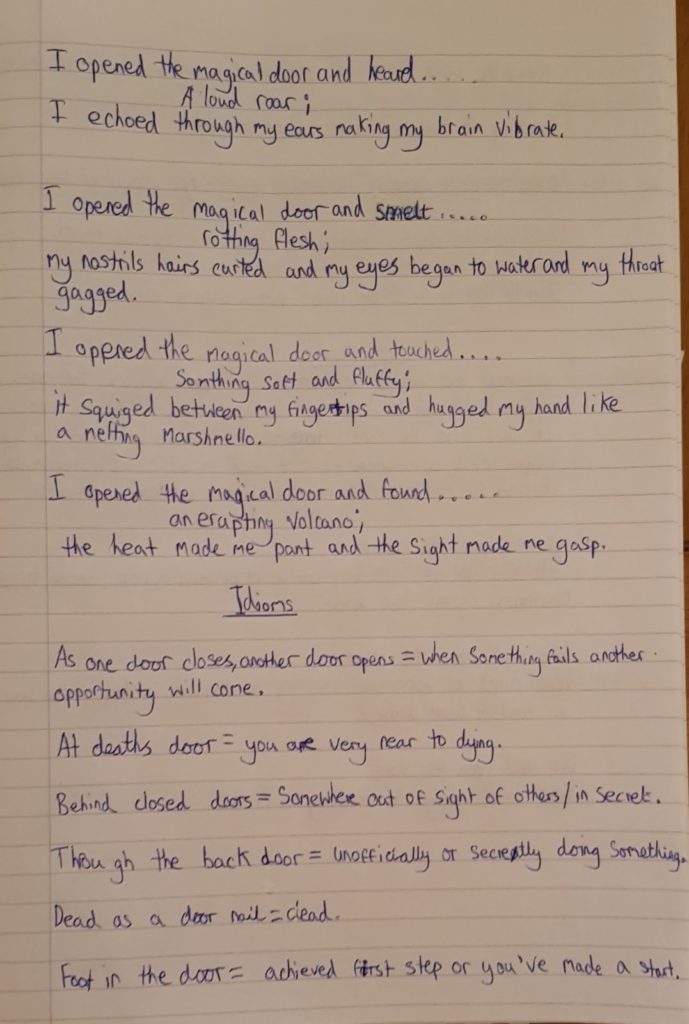 I opened the magical door and heard......
A loud roar;
I echoed through my ears making my brain vibrate.
I opened the magical door and smelt.....
rotting flesh;
my nostrils hairs curled and my eyes began to water and my throat
gagged.
I opened the magical door and touched....
Somthing soft and fluffy;
it squiged between my fingertips and hugged my hand like
a melting Marshmello.
I opened the magical door and found......
an erupting volcano;
the heat made me pant and the sight made me gasp.
Idioms
As one door closes, another door opens = when something fails another
opportunity will come.
At deaths door = you are very near to dying.
Behind closed doors = Somewhere out of sight of others/in secret.
Though the back door = unofficially or secretly doing something.
Dead as a door nail = dead.
Foot in the door = achieved first step or you've made a start.